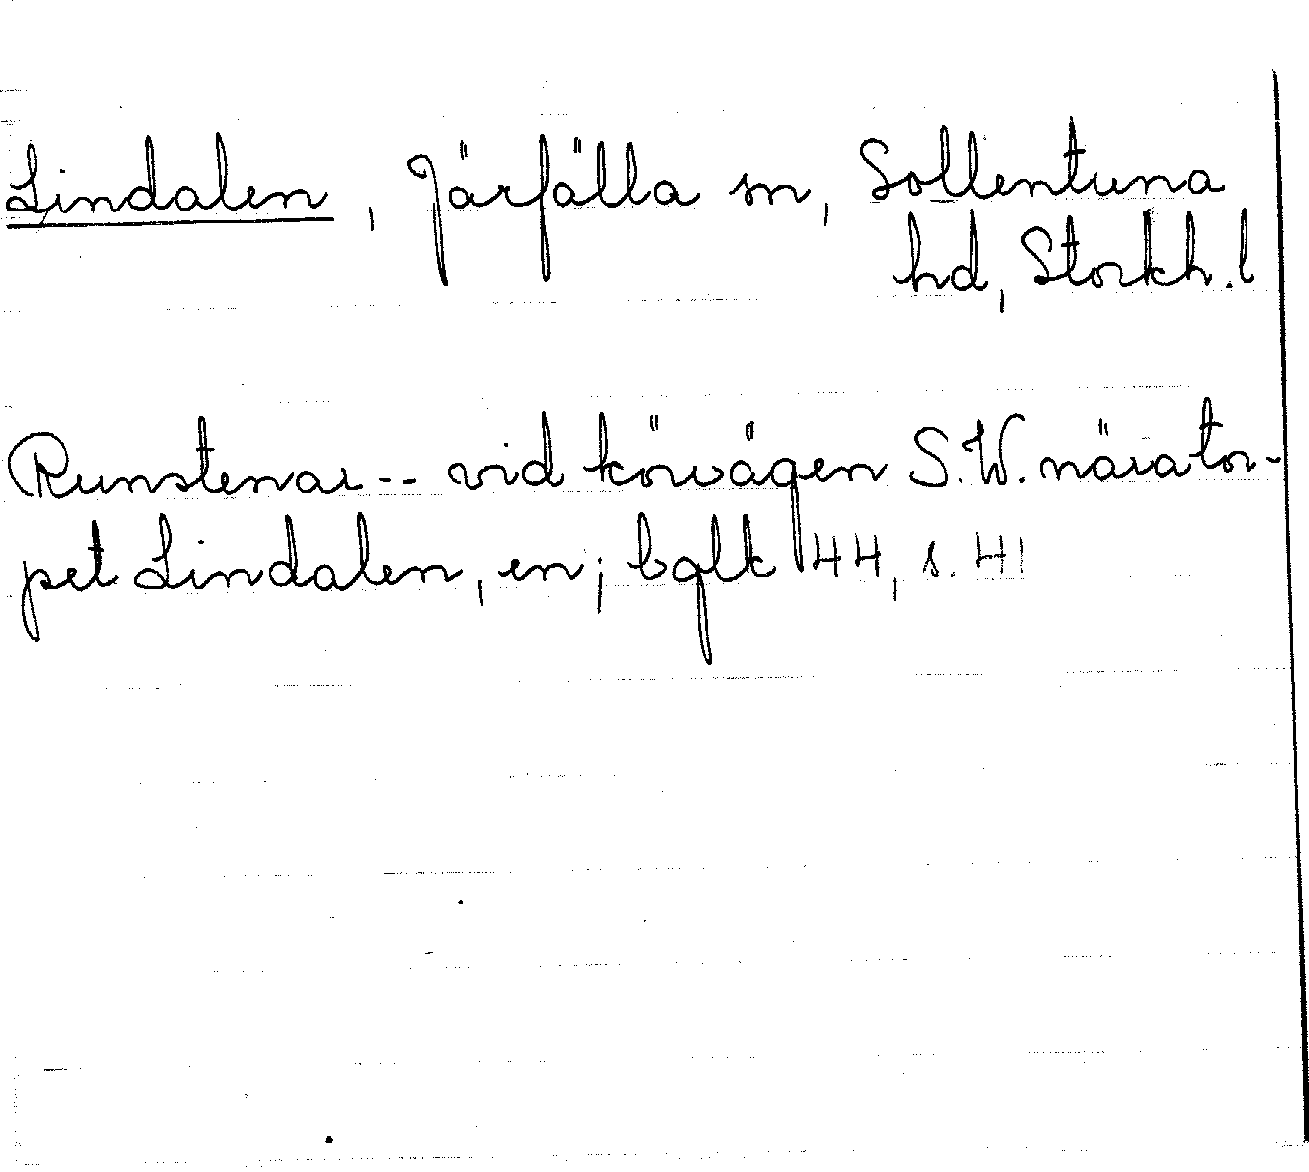 Lindalen, Järfälla sn, Sollentuna
hd, Storkh.l
Runstenar -- vid körvägen S.W. nära tor-
pet Lindalen, en; bglk 144, s. 41